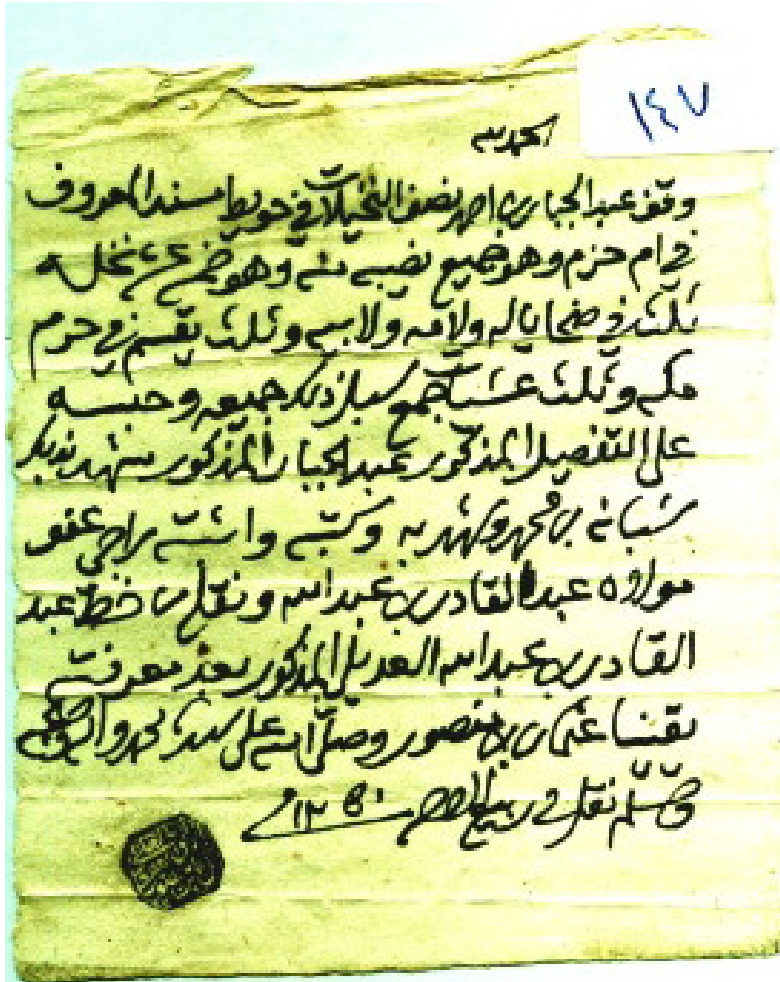 ١٤٧
الحمد لله
وقف عبد الجبار بن احمد نصف النخيلات في حويط مسند المعروف
في ام حزم وهو جميع نصيبه منه وهو خمس نخله
ثلث في ضحايا له ولامه ولابيه وثلث يقسم في حرم
مكه وثلث عشيات جمع سبل ذلك جميعه وحبسه
على التفصيل المذكور عبد الجبار المذكور شهد بذلك
شبانه بن محمد وشهد به وكتبه واثبته راجي عفو
مولاه عبد القادر بن عبد الله ونقله من خط عبد
القادر بن عبد الله العديلي المذكور بعد معرفته
يقينا عثمان بن منصور وصلى الله على سيدنا محمد واله وصحبه
وسلم نقل في ربيع